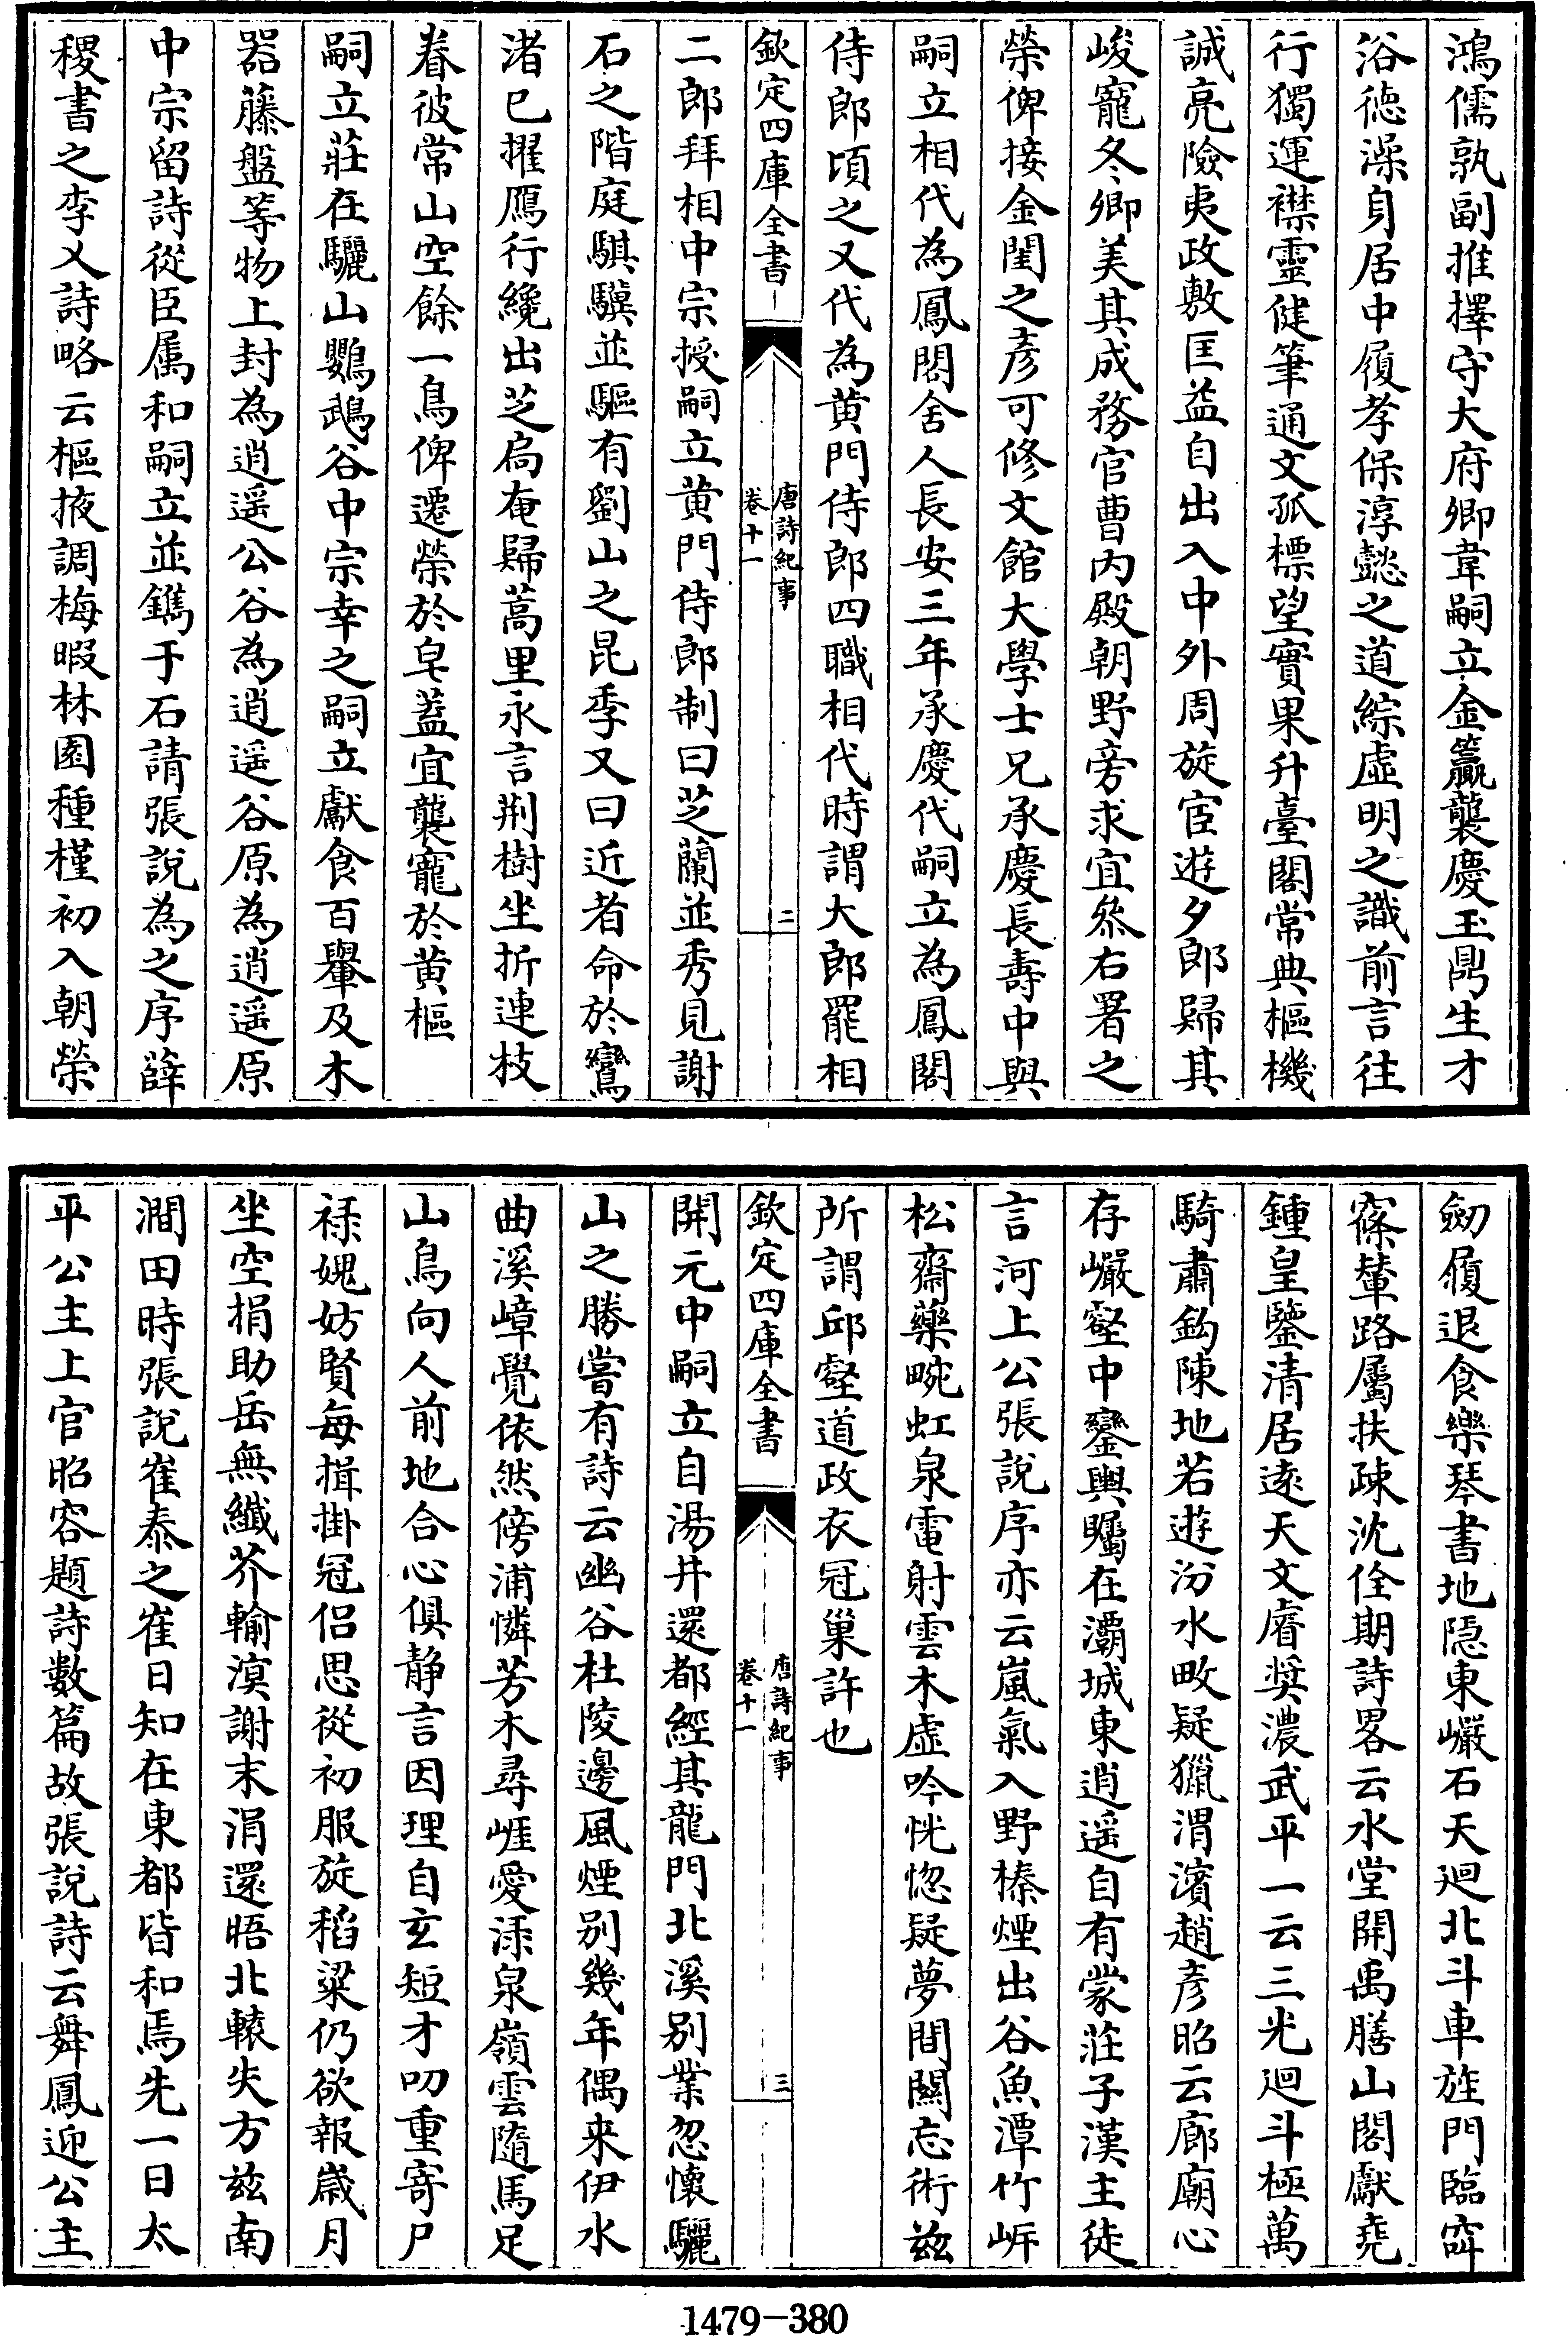 鴻儒孰副推擇守大府卿韋嗣立金籯襲慶玉鼎生才
浴德澡身居中履孝保淳懿之道綜虛明之識前言往
行獨運襟靈健筆通文孤標望實果升臺閣常典樞機
誠亮險夷政敷匡益自出入中外周旋宦遊夕郎歸其
峻寵冬卿美其成務官曹内殿朝野旁求宜叅右署之
榮俾接金閨之彥可修文館大學士兄承慶長壽中與
嗣立相代為鳳閣舍人長安三年承慶代嗣立為鳳閣
侍郎頃之又代為黄門侍郎四職相代時謂大郎罷相
欽定四庫全書
唐詩紀事
卷十一
二
二郎拜相中宗授嗣立黄門侍郎制曰芝蘭並秀見謝
石之階庭騏驥並驅有劉山之昆季又曰近者命於鸞
渚已擢鴈行纔出芝扃奄歸蒿里永言荆樹坐折連枝
眷彼常山空餘一鳥俾遷榮於皂蓋宜襲寵於黄樞
嗣立莊在驪山鸚鵡谷中宗幸之嗣立獻食百轝及木
器藤盤等物上封為逍遥公谷為逍遥谷原為逍遥原
中宗留詩從臣属和嗣立並鐫于石請張說為之序薛
稷書之李乂詩略云樞掖調梅暇林園種槿初入朝榮
劒履退食樂琴書地隱東巖石天廻北斗車旌門臨窣
窱輦路屬扶疎沈佺期詩畧云水堂開禹膳山閣獻堯
鍾皇鑒清居逺天文睿奬濃武平一云三光廻斗極萬
騎肅鈎陳地若遊汾水畋疑獵渭濱趙彥昭云廊廟心
存巖壑中鑾輿矚在灞城東逍遥自有蒙莊子漢主徒
言河上公張說序亦云嵐氣入野榛煙出谷魚潭竹㟁
松齋藥畹虹泉電射雲木虛吟恍惚疑夢間闗忘術兹
所謂邱壑道政衣冠巢許也
欽定四庫全書
唐詩紀事
卷十一
三
開元中嗣立自湯井還都經其龍門北溪别業忽懷驪
山之勝嘗有詩云幽谷杜陵邊風煙别幾年偶來伊水
曲溪嶂覺依然傍浦憐芳木尋崕愛渌泉嶺雲隨馬足
山鳥向人前地合心俱静言因理自玄短才叨重寄尸
禄媿妨賢每揖掛冠侣思從初服旋稻粱仍欲報歲月
坐空捐助岳無纖芥輸溟謝末涓還晤北轅失方兹南
澗田時張說崔泰之崔日知在東都皆和焉先一日太
平公主上官昭容題詩數篇故張說詩云舞鳳迎公主
1479-380